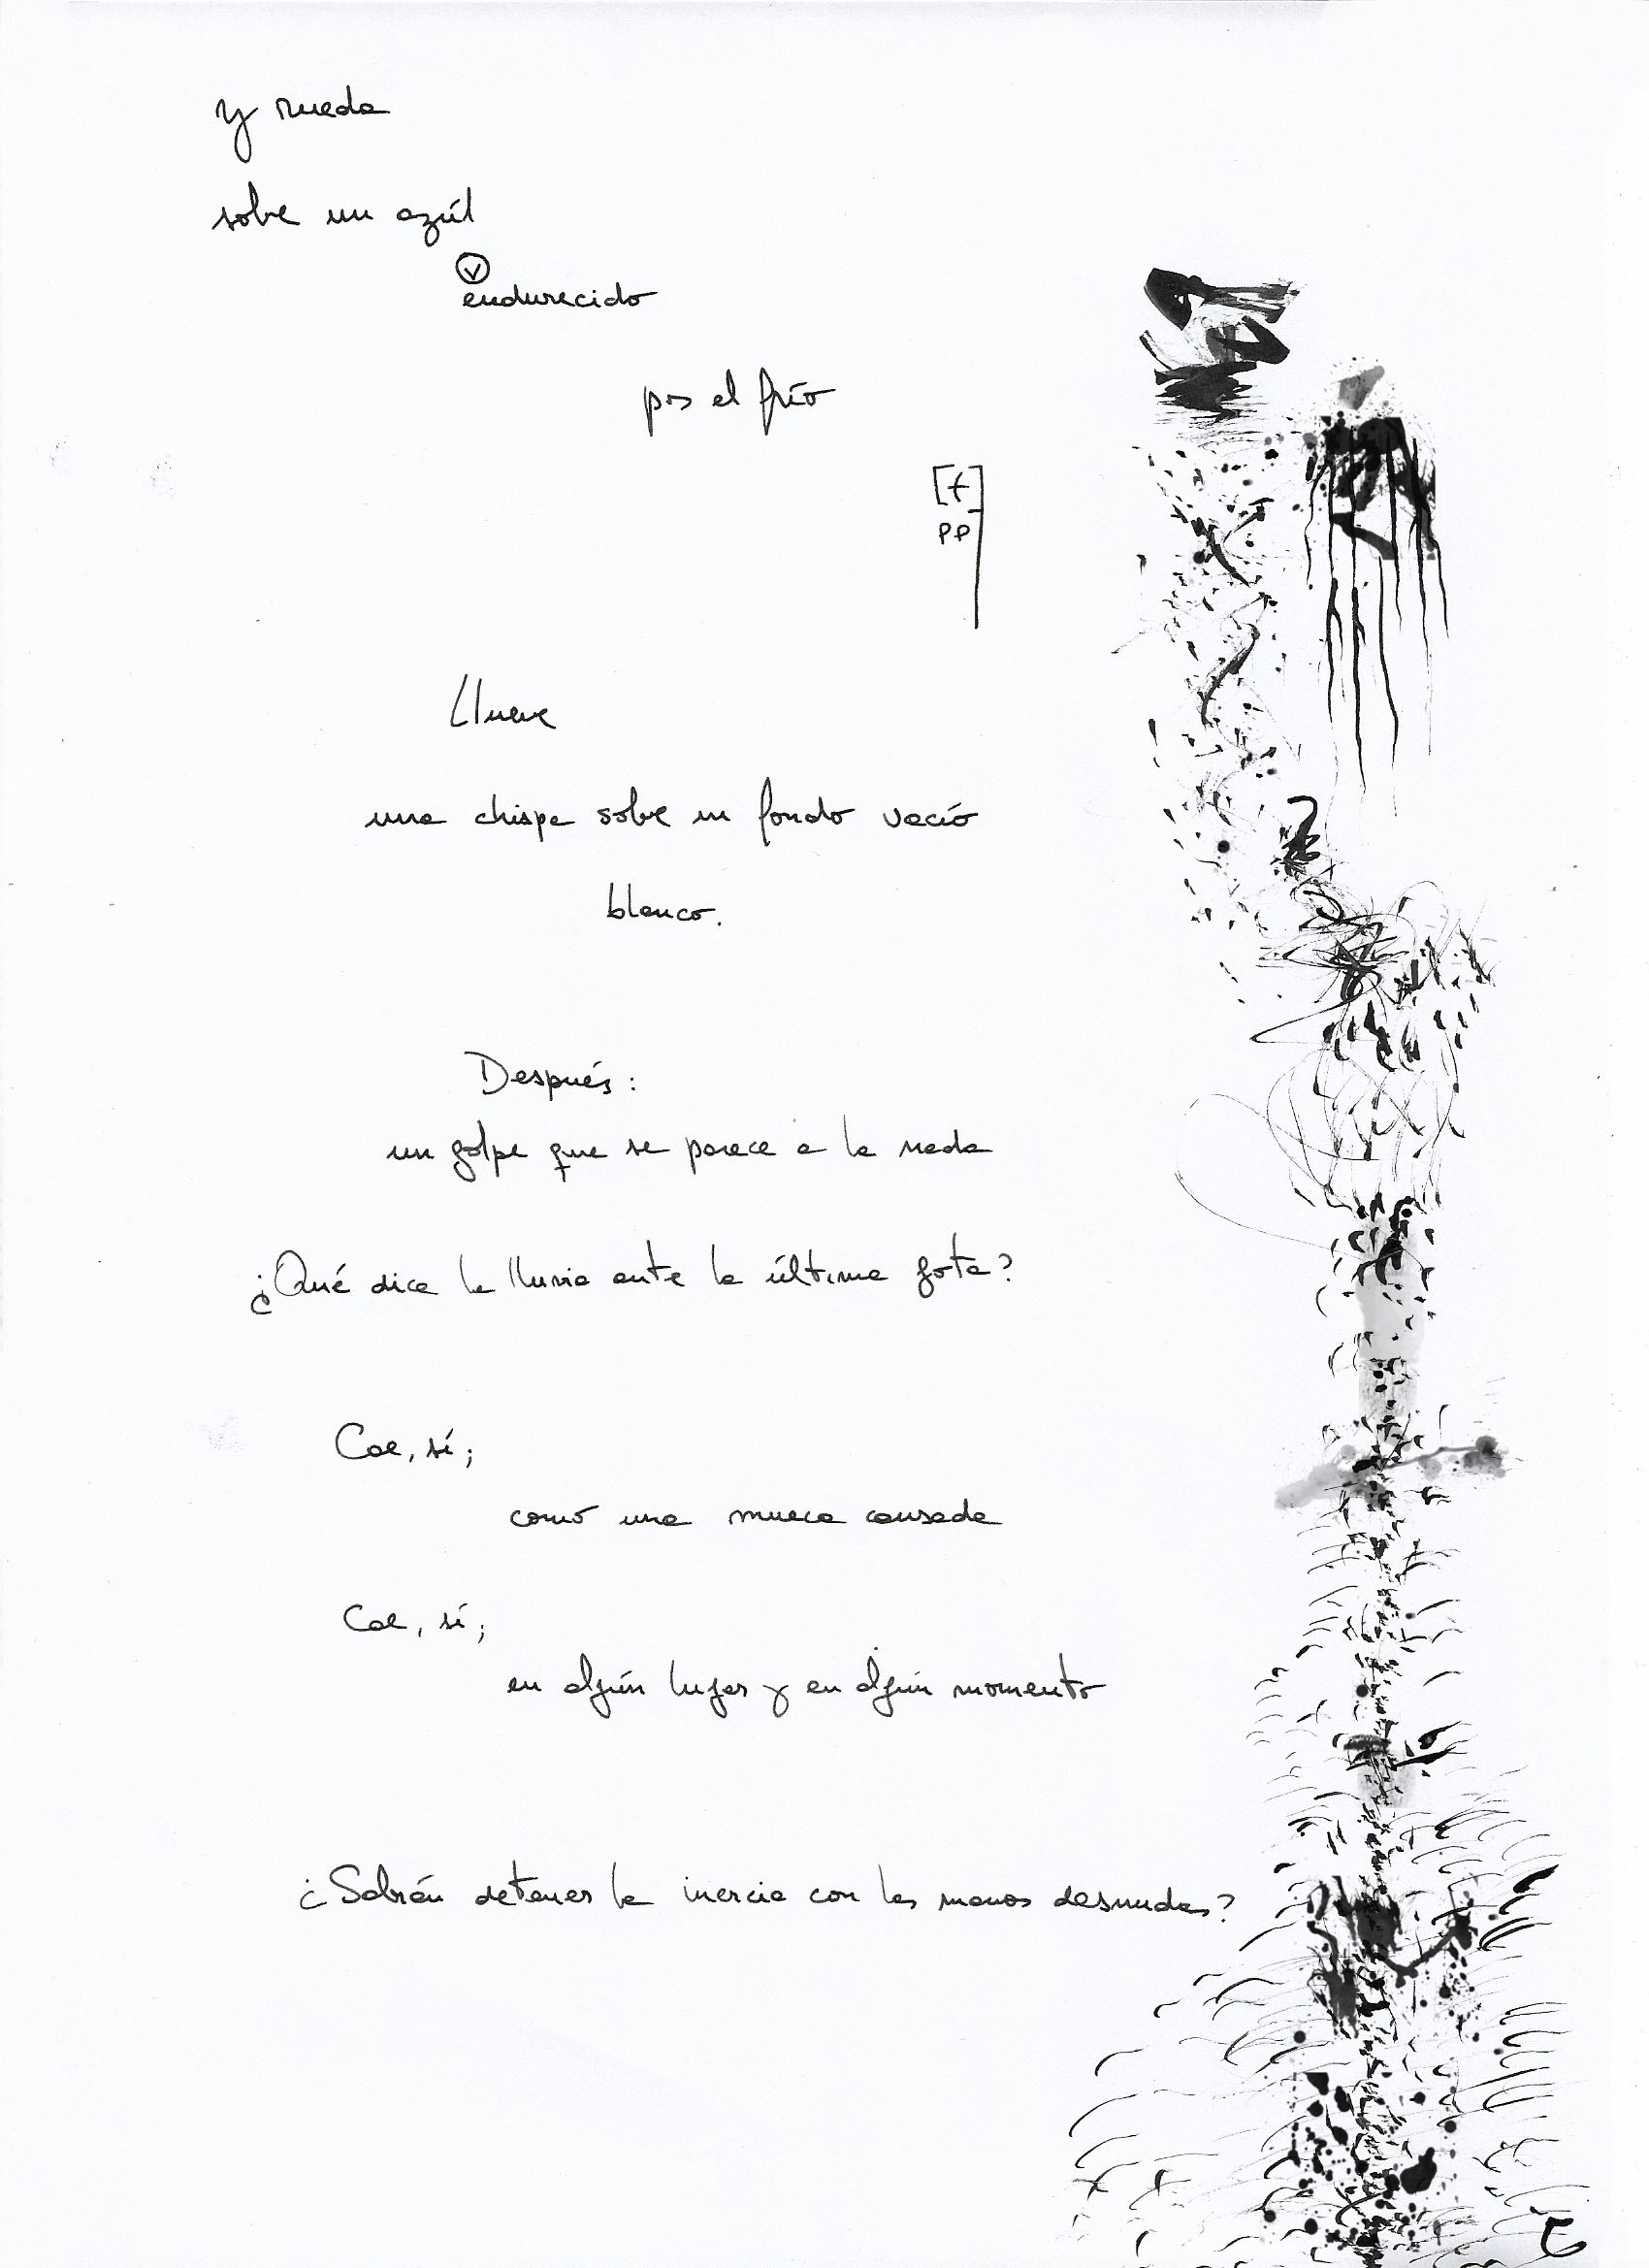 y rueda
sobre un azúl
v
endurecido
por el frío
[t]
pp
Llueve
una chispa sobre un fondo vació
blanco.
Después:
un golpe que se parece a la nada
¿Qué dice la lluvia ante la última gota?
Cae, sí;
como una mueca cansada
Cae, sí;
en algún lugar y en algún momento
¿Sabrán detener la inercia con las manos desnudas?